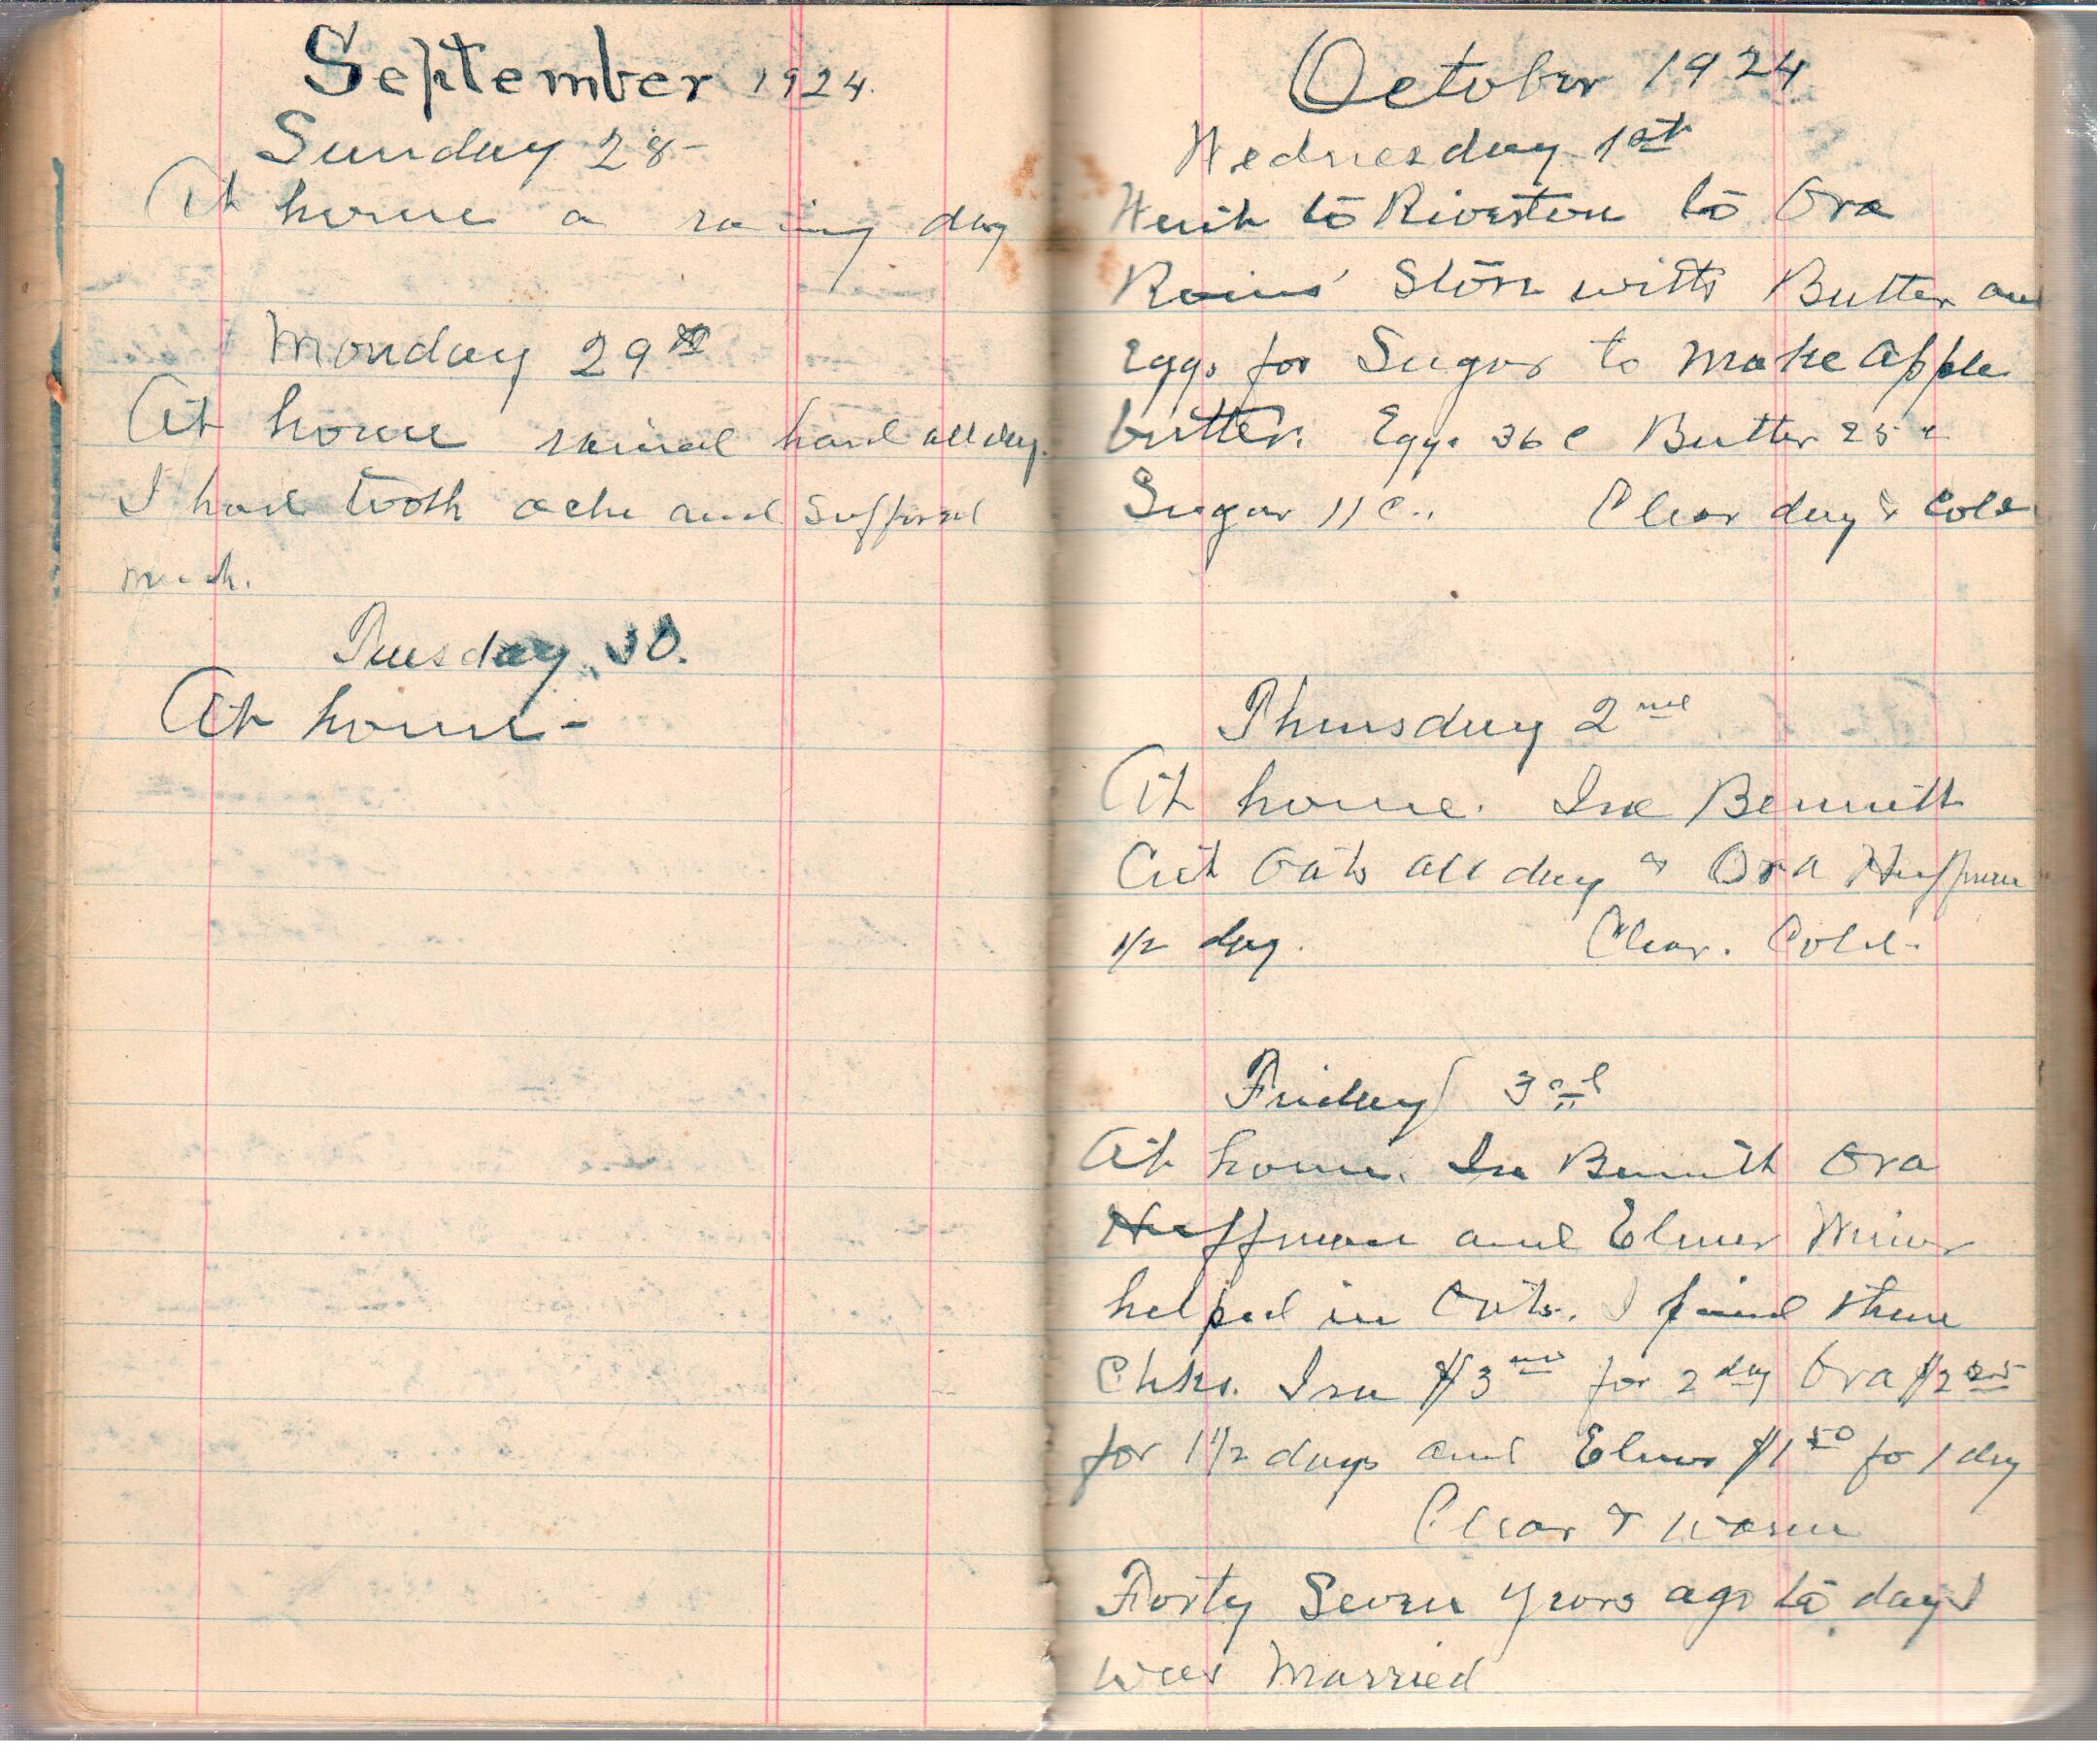 September 1924.
Sunday 28-
At home a rainy day
Monday 29th
At home rained hard all day.
I had tooth ache and suffered
much.
Tuesday 30.
At home-
October 1924
Wednesday 1st
Went to Riverton to Ora
Store with Butter and
Eggs for Sugar to make apple
butter. Eggs 36c Butter 25c
Sugar 11c.. Clear day & Cold
Thursday 2nd
At home. Ira Bennett
Cut Oats all day & Ora Huffman
1/2 day. Clear. Cold.
Friday 3rd
At home. Ira Bennett Ora
Huffman and Elmer
helped in Oats. I paid them
Chks. Ira $3 00 for 2 day Ora $2 25
for 1 1/2 days and Elmer $1 50 fo 1 day
Clear & warm
Forty Seven years ago to day I
was Married